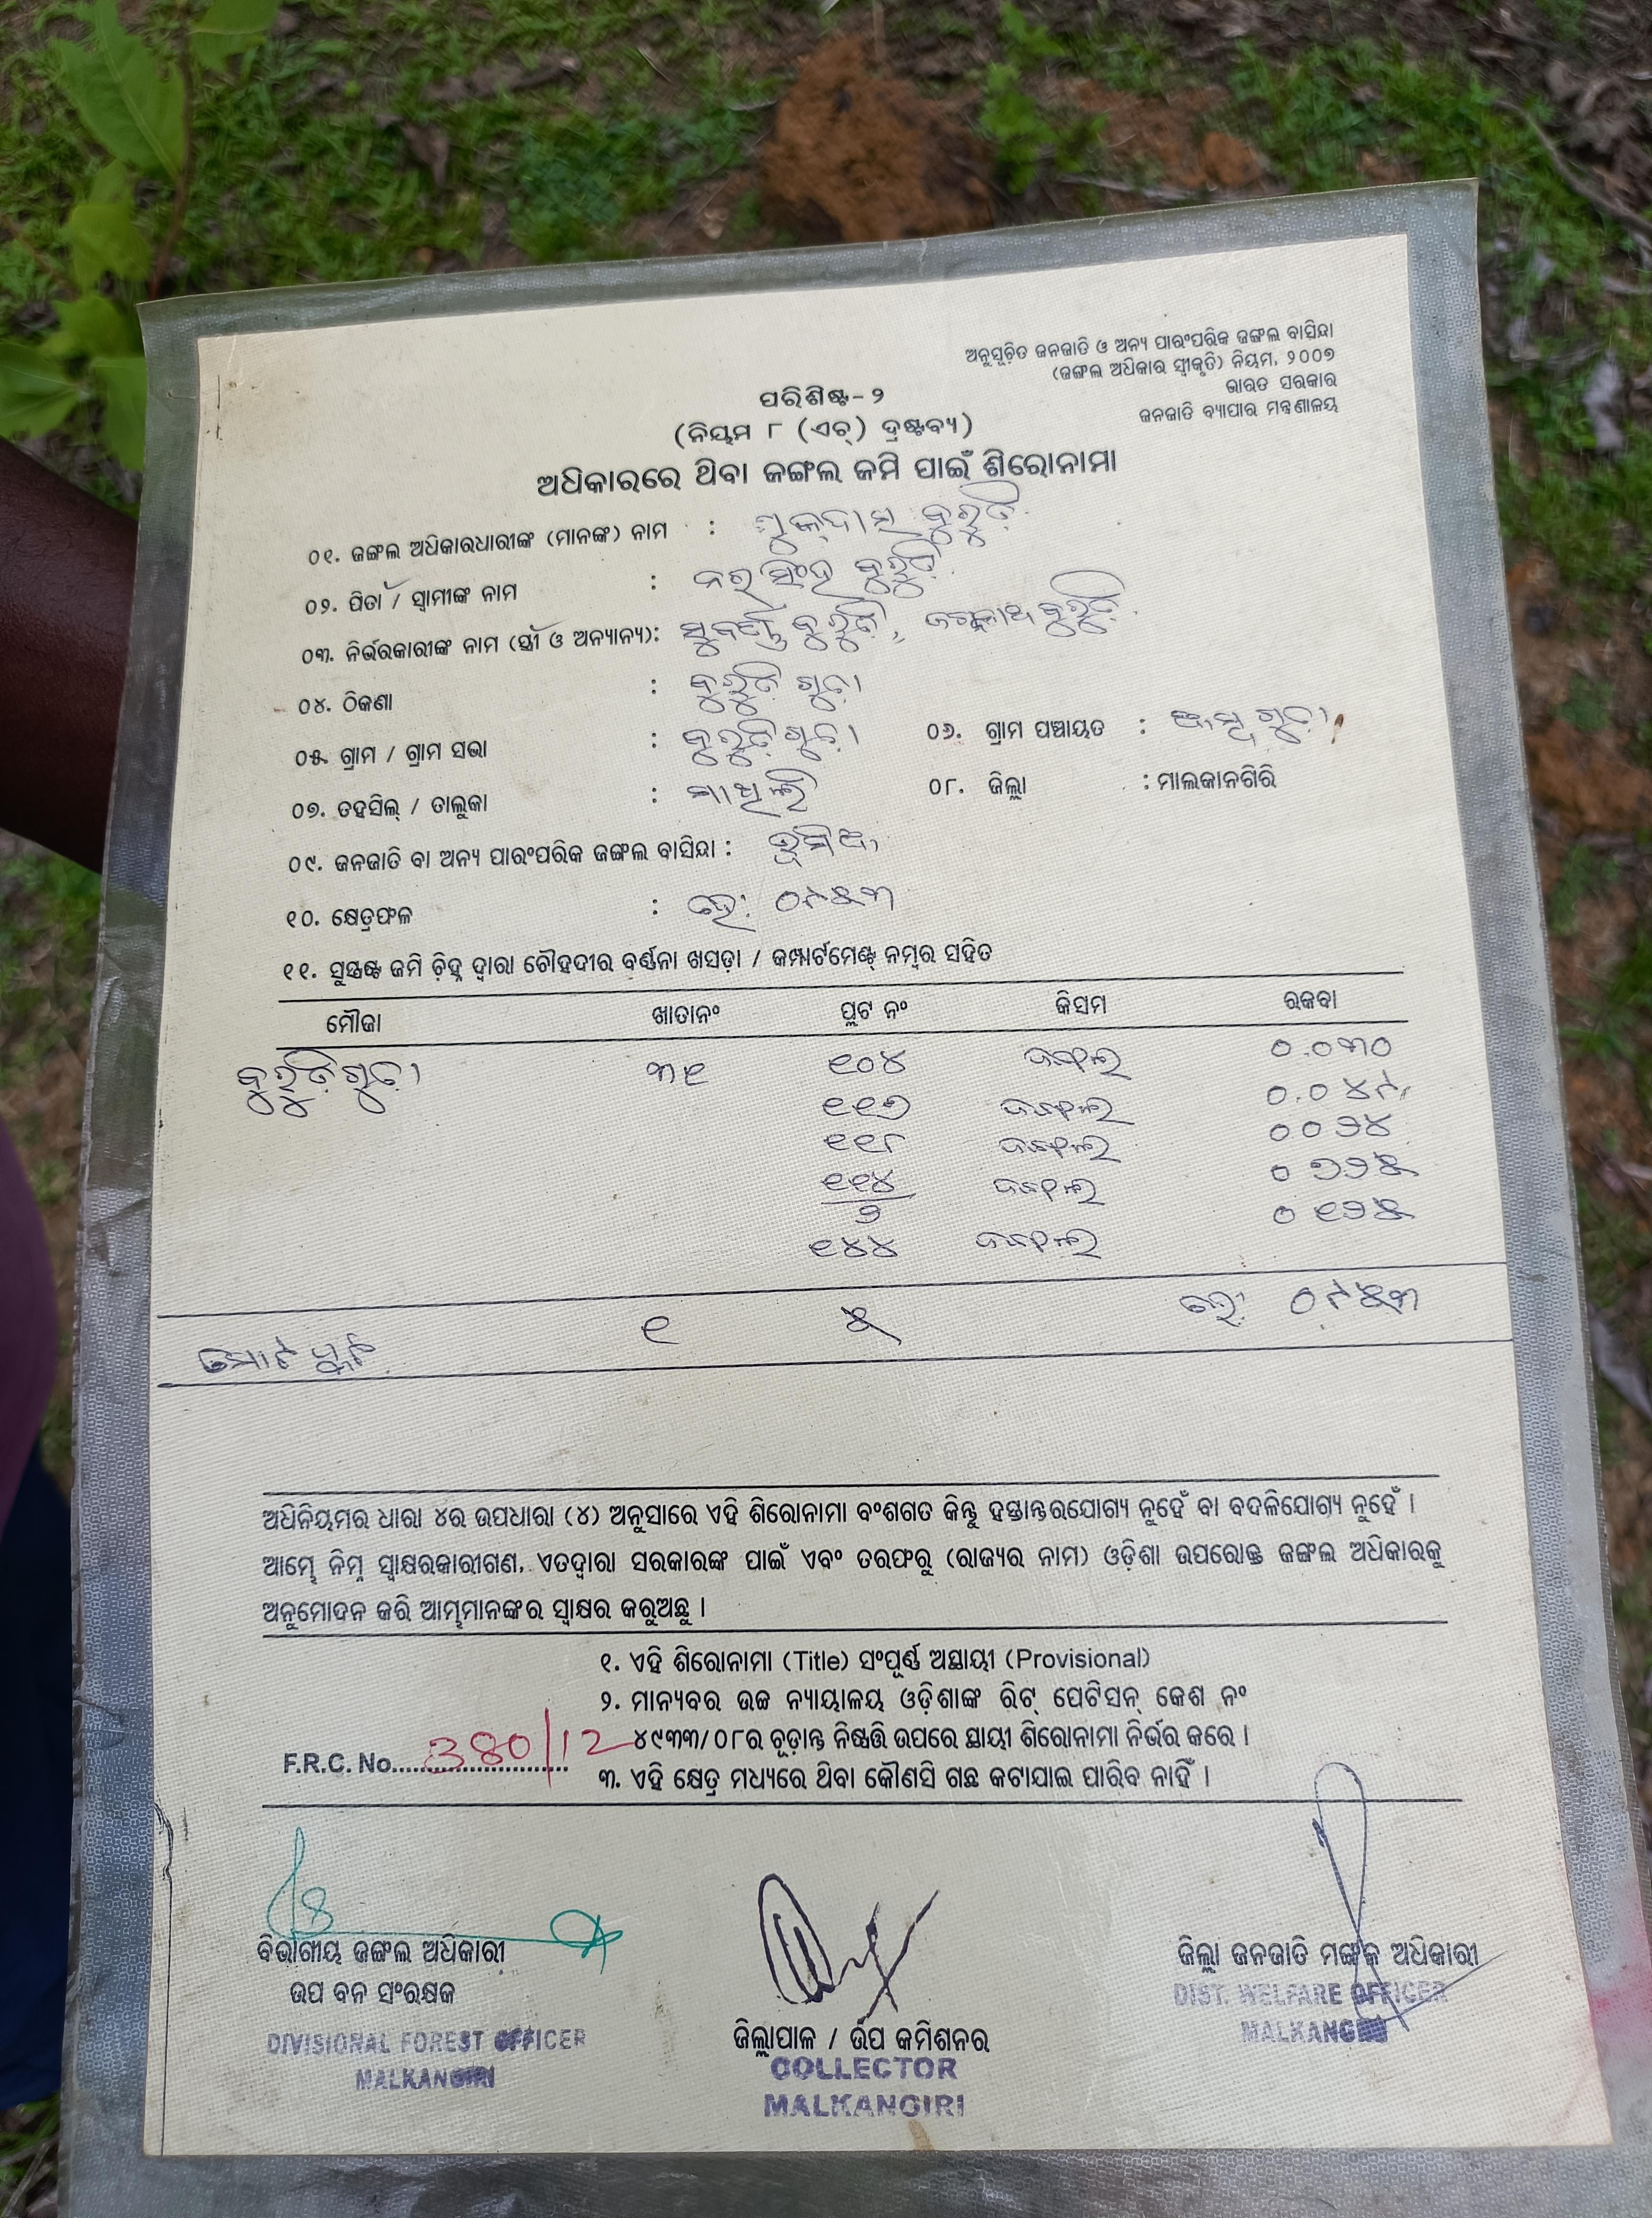 ଅନୁସୂଚିତ ଜନଜାତି ଓ ଅନ୍ୟ ପାରଂପରିକ ଜଙ୍ଗଲ ବାସିନ୍ଦା
(ଜଙ୍ଗଲ ଅଧିକାର ସ୍ୱୀକୃତି) ନିୟମ, ୨୦୦୭
ଭାରତ ସରକାର
ଜନଜାତି ବ୍ୟାପାର ମନ୍ତ୍ରଣାଳୟ
ପରିଶିଷ୍ଟ-୨
(ନିୟମ ୮ (ଏଚ୍) ଦ୍ରଷ୍ଟବ୍ୟ)
ଅଧିକାରରେ ଥିବା ଜଙ୍ଗଲ ଜମି ପାଇଁ ଶିରୋନାମା
୦୧. ଜଙ୍ଗଲ ଅଧିକାରଧାରୀଙ୍କ (ମାନଙ୍କ) ନାମ :
୦୨. ପିତା / ସ୍ୱାମୀଙ୍କ ନାମ : ନରସିଂହ
୦୩. ନିର୍ଭରକାରୀଙ୍କ ନାମ (ସ୍ତ୍ରୀ ଓ ଅନ୍ୟାନ୍ୟ):
୦୪. ଠିକଣା :
୦୫. ଗ୍ରାମ / ଗ୍ରାମ ସଭା : ୦୬. ଗ୍ରାମ ପଞ୍ଚାୟତ :
୦୭. ତହସିଲ୍ / ତାଲୁକା : ମାଥିଲି ୦୮. ଜିଲ୍ଲା : ମାଲକାନଗିରି
୦୯. ଜନଜାତି ବା ଅନ୍ୟ ପାରଂପରିକ ଜଙ୍ଗଲ ବାସିନ୍ଦା : ଭୂମିଆ
୧୦. କ୍ଷେତ୍ରଫଳ : ହେ: ୦୯୫୩
୧୧. ସୁସ୍ପଷ୍ଟ ଜମି ଚିହ୍ନ ଦ୍ୱାରା ଚୌହଦୀର ବର୍ଣ୍ଣନା ଖସଡ଼ା / କମ୍ପାର୍ଟମେଣ୍ଟ୍ ନମ୍ବର ସହିତ
ମୌଜା ଖାତାନଂ ପ୍ଲଟ ନଂ କିସମ ରକବା
୩୧ ୧୦୪ ଜଙ୍ଗଲ ୦.୦୩୦
୧୧୭ ଜଙ୍ଗଲ ୦.୦୪୯
୧୧୮ ଜଙ୍ଗଲ ୦୦୨୪
୧୧୪/୨ ଜଙ୍ଗଲ ୦୭୨୫
୧୪୪ ଜଙ୍ଗଲ ୦୧୨୫
ମୋଟ ପ୍ଲଟ ୧ ୫ ହେ: ୦୯୫୩
ଅଧିନିୟମର ଧାରା ୪ର ଉପଧାରା (୪) ଅନୁସାରେ ଏହି ଶିରୋନାମା ବଂଶଗତ କିନ୍ତୁ ହସ୍ତାନ୍ତରଯୋଗ୍ୟ ନୁହେଁ ବା ବଦଳିଯୋଗ୍ୟ ନୁହେଁ ।
ଆମ୍ଭେ ନିମ୍ନ ସ୍ୱାକ୍ଷରକାରୀଗଣ, ଏତଦ୍ୱାରା ସରକାରଙ୍କ ପାଇଁ ଏବଂ ତରଫରୁ (ରାଜ୍ୟର ନାମ) ଓଡ଼ିଶା ଉପରୋକ୍ତ ଜଙ୍ଗଲ ଅଧିକାରକୁ
ଅନୁମୋଦନ କରି ଆମ୍ଭମାନଙ୍କର ସ୍ୱାକ୍ଷର କରୁଅଛୁ ।
୧. ଏହି ଶିରୋନାମା (Title) ସଂପୂର୍ଣ୍ଣ ଅସ୍ଥାୟୀ (Provisional)
୨. ମାନ୍ୟବର ଉଚ୍ଚ ନ୍ୟାୟାଳୟ ଓଡ଼ିଶାଙ୍କ ରିଟ୍ ପେଟିସନ୍ କେଶ ନଂ
୪୯୩୩/୦୮ର ଚୂଡ଼ାନ୍ତ ନିଷ୍ପତ୍ତି ଉପରେ ସ୍ଥାୟୀ ଶିରୋନାମା ନିର୍ଭର କରେ ।
F.R.C. No. 380/12
୩. ଏହି କ୍ଷେତ୍ର ମଧ୍ୟରେ ଥିବା କୌଣସି ଗଛ କଟାଯାଇ ପାରିବ ନାହିଁ ।
ବିଭାଗୀୟ ଜଙ୍ଗଲ ଅଧିକାରୀ
ଉପ ବନ ସଂରକ୍ଷକ
DIVISIONAL FOREST OFFICER
MALKANGIRI
ଜିଲ୍ଲାପାଳ / ଉପ କମିଶନର
COLLECTOR
MALKANGIRI
ଜିଲ୍ଲା ଜନଜାତି ମଙ୍ଗଳ ଅଧିକାରୀ
DIST. WELFARE OFFICER
MALKANGIRI